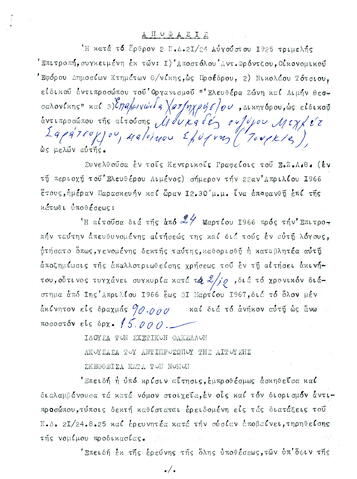 ΑΠΟΦΑΣΙΣ
Ἡ κατά τό ἄρθρον 2 Ν.Δ.21/24 Αὐγούστου 1925 τριμελής
Ἐπιτροπή, συγκειμένη ἐκ τῶν: 1) Ἀποστόλου Ἀντ.Φρόντσου, Οἰκονομικοῦ
Ἐφόρου Δημοσίων Κτημάτων Θ/νίκης, ὡς Προέδρου, 2) Νικολάου Τότσιου,
εἰδικοῦ ἀντιπροσώπου τοῦ Ὀργανισμοῦ "Ἐλευθέρα Ζώνη καί Λιμήν Θεσ-
σαλονίκης" καί 3) Ἐπαμεινώνδα Δικηγόρου, ὡς εἰδικοῦ
ἀντιπροσώπου τῆς αἰτούσης συζύγου Μεχμέτ
κατοίκου Σμύρνης (Τουρκίας),
ὡς μελῶν αὐτῆς.
Συνελθοῦσα ἐν τοῖς Κεντρικοῖς Γραφείοις τοῦ Ε.Ζ.Λ.Θ. (ἐν
τῇ περιοχῇ τοῦ Ἐλευθέρου Λιμένος) σήμερον τήν 22αν Ἀπριλίου 1966
ἔτους, ἡμέραν Παρασκευήν καί ὥραν 12.30' μ.μ. ἵνα ἀποφανθῇ ἐπί τῆς
κάτωθι ὑποθέσεως:
Ἡ αἰτοῦσα διά τῆς ἀπό 24 Μαρτίου 1966 πρός τήν Ἐπιτρο-
πήν ταύτην ἀπευθυνομένης αἰτήσεώς της καί διά τούς ἐν αὐτῇ λόγους,
ᾐτήσατο ὅπως, γενομένης δεκτῆς ταύτης, καθορισθῇ ἡ καταβλητέα αὐτῇ
ἀποζημίωσις τῆς ἀπαλλοτριωθείσης χρήσεως τοῦ ἐν τῇ αἰτήσει ἀκινή-
του, οὗτινος τυγχάνει συγκυρία κατά τά 2/12, διά τό χρονικόν διά-
στημα ἀπό 1ης Ἀπριλίου 1966 ἕως 31 Μαρτίου 1967, διά τό ὅλον μέν
ἀκίνητον εἰς δραχμάς 90.000 καί διά τό ἀνῆκον αὐτῇ ὡς ἄνω
ποσοστόν εἰς δρχ. 15.000.-
ΙΔΟΥΣΑ ΤΟΝ ΣΧΕΤΙΚΟΝ ΦΑΚΕΛΛΟΝ
ΑΚΟΥΣΑΣΑ ΤΟΥ ΑΝΤΙΠΡΟΣΩΠΟΥ ΤΗΣ ΑΙΤΟΥΣΗΣ
ΣΚΕΦΘΕΙΣΑ ΚΑΤΑ ΤΟΝ ΝΟΜΟΝ
Ἐπειδή ἡ ὑπό κρίσιν αἴτησις, ἐμπροθέσμως ἀσκηθεῖσα καί
διαλαμβάνουσα τά κατά νόμον στοιχεῖα, ἐν οἷς καί τόν διορισμόν ἀντι-
προσώπου, τύποις δεκτή καθίσταται ἐρειδομένη εἰς τάς διατάξεις τοῦ
Ν.Δ. 21/24.8.25 καί ἐρευνητέα κατά τήν οὐσίαν ἀποβαίνει, τηρηθείσης
τῆς νομίμου προδικασίας.
Ἐπειδή ἐκ τῆς ἐρεύνης τῆς ὅλης ὑποθέσεως, τῶν ὑπ' ὄψιν τῆς
./.